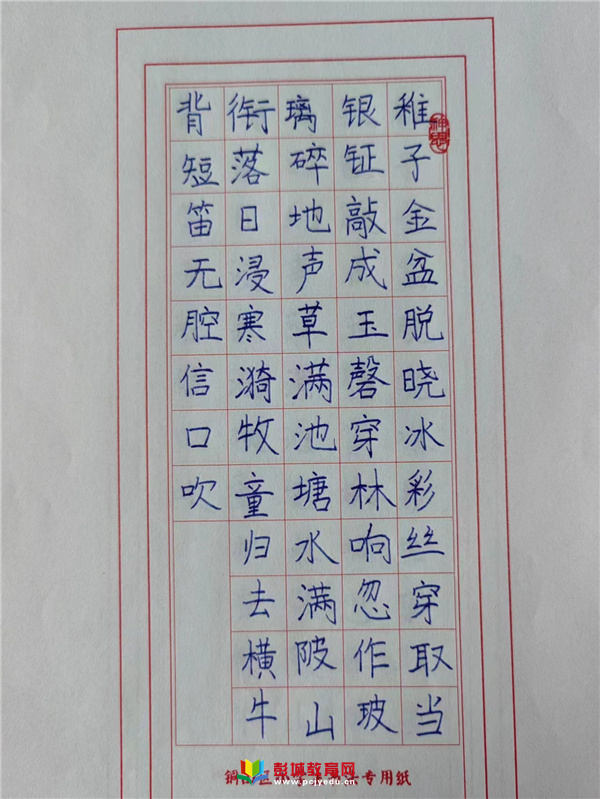 稚子金盆脱晓冰彩丝穿取当
银钲敲成玉磬穿林响忽作玻
璃碎地声草满池塘水满陂山
衔落日浸寒漪牧童归去横牛
背短笛无腔信口吹
彭城教育网
www.pcjyedu.cn
专用纸